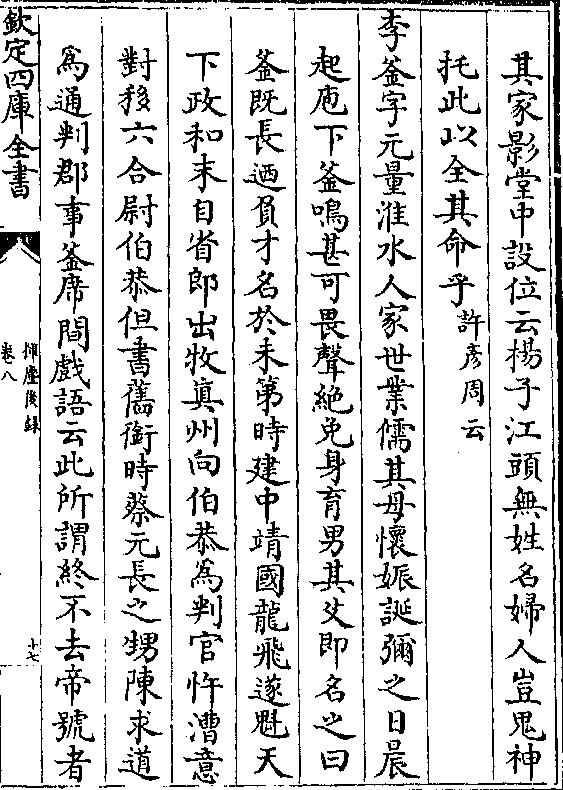 其家影堂中設位云楊子江頭無姓名婦人豈鬼神
托此以全其命乎許彥周云
李釜字元量淮水人家世業儒其母懷娠誕彌之日晨
起庖下釜鳴甚可畏聲絶免身育男其父即名之曰
釜既長迺負才名於未第時建中靖國龍飛遂魁天
下政和末自省郎出牧真州向伯恭為判官忤漕意
對移六合尉伯恭但書舊銜時蔡元長之甥陳求道
爲通判郡事釜席間戲語云此所謂終不去帝號者
欽定四庫全書
揮麈後錄
卷八
十七